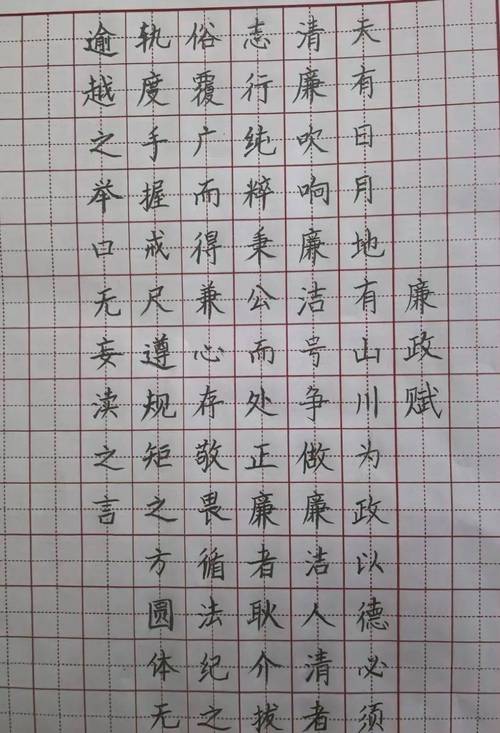 廉政赋
天有日月地有山川为政以德必须
清廉吹响廉洁号争做廉洁人清者
志行纯粹秉公而处正廉者耿介拔
俗覆广而得兼心存敬畏循法纪之
轨度手握戒尺遵规矩之方圆体无
逾越之举口无妄渎之言